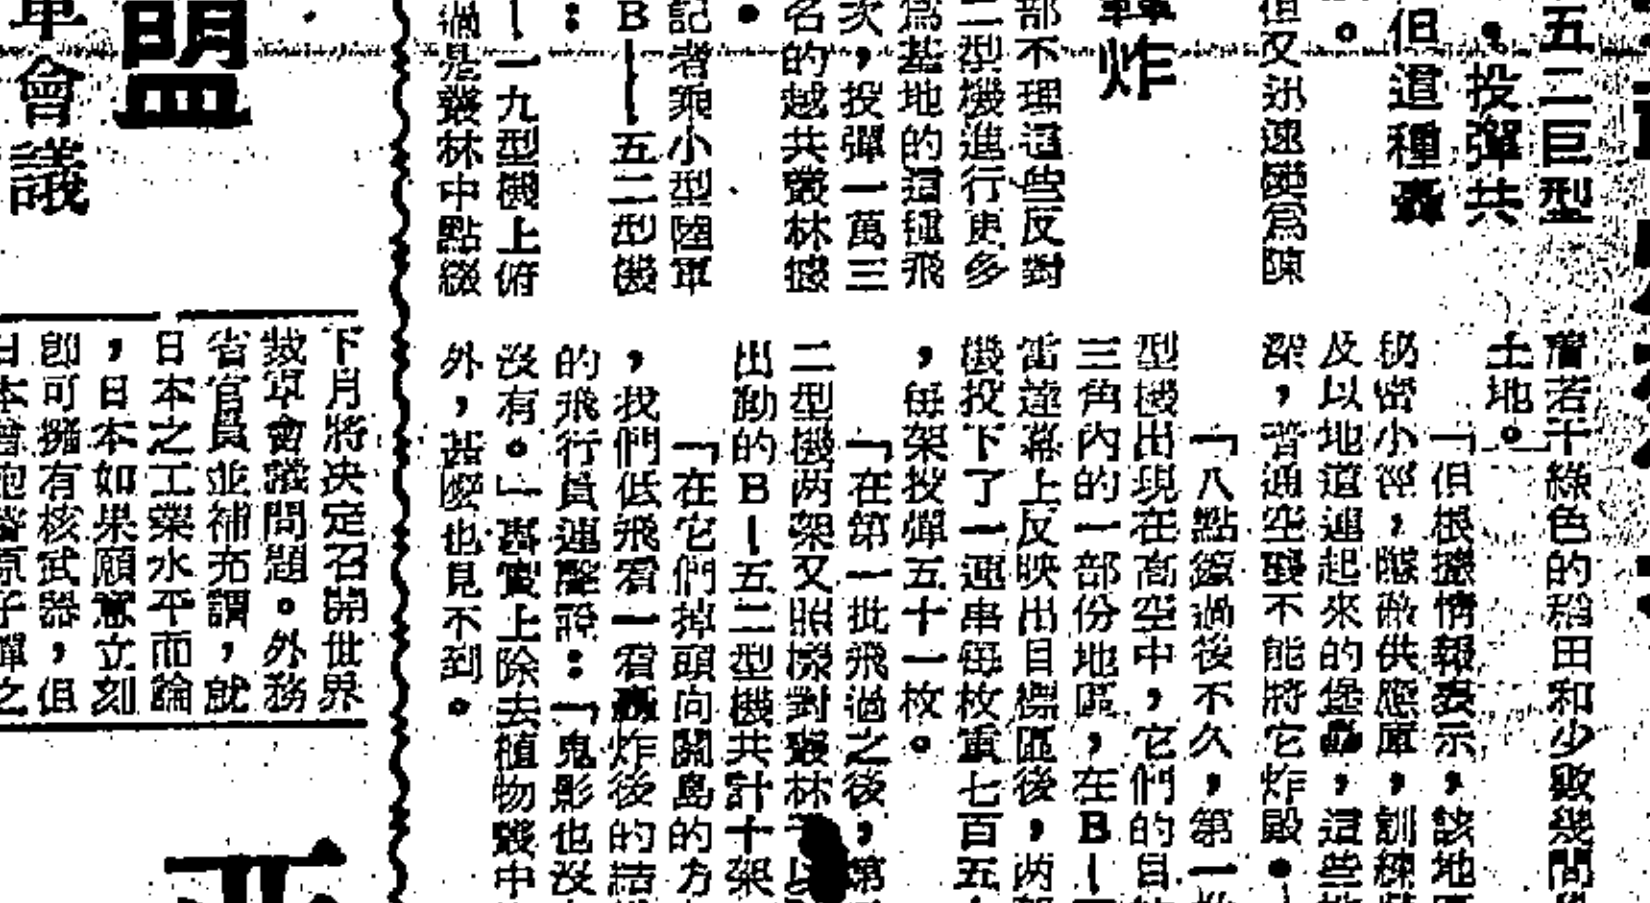 五二巨型
。投彈共
但這種轟
。
但又迅速變爲陳
轟炸
部不理這些反對
二型機進行更多
爲基地的這種飛
次，投彈一萬三
名的越共叢林據
。
記者乘小型陸軍
B—五二型機
：
—一九型機上俯
過是叢林中點綴
若干綠色的稻田和少數幾間
土地。」
「但根據情報表示，該地
秘密小徑，隱蔽供應庫，訓練
及以地道連起來的堡壘，這些
深，普通空襲不能將它炸毀。
「八點鐘過後不久，第一批
型機出現在高空中，它們的目
三角內的一部份地區，在B—
雷達幕上反映出目標區後，两
機投下了一連串每枚重七百五
，每架投彈五十一枚。
「在第一批飛過之後，第
二型機两架又照樣對叢林予以
出動的B—五二型機共計十架
「在它們掉頭向關島的方
，我們低飛看一看轟炸後的結
的飛行員連聲說：「鬼影也沒
沒有。」事實上除去植物叢中
外，甚麼也見不到。
盟
軍會議
下月將决定召開世界
裁軍會議問題。外務
省官員並補充謂，就
日本之工業水平而論
，日本如果願意立刻
卽可擁有核武器，但
日本曾飽嘗原子彈之